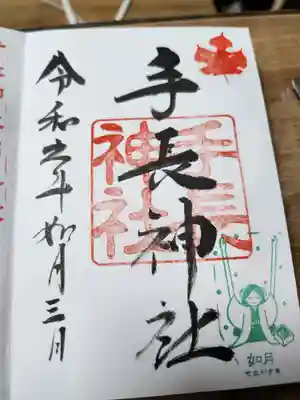 手長神社
手長
神社
令和六年如月三日
如月